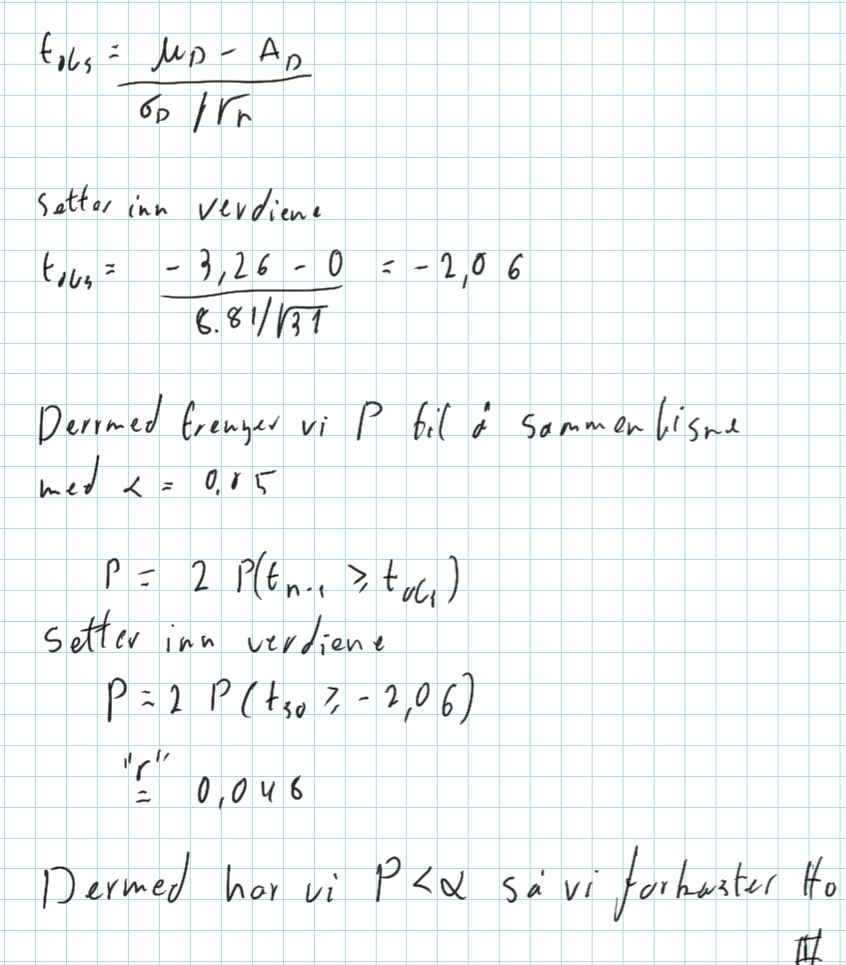 t_obs = (μ_D - A_D) / (σ_D / √n)
Setter inn verdiene
t_obs = (-3,26 - 0) / (8.81/√31) = -2,06
Derrmed trenger vi P til å sammenligne
med α = 0,05
P = 2 P(t_n-1 ≥ t_obs)
Setter inn verdiene
P = 2 P(t_30 ≥ -2,06)
"r"
= 0,046
Dermed har vi P < α så vi forkaster H_0